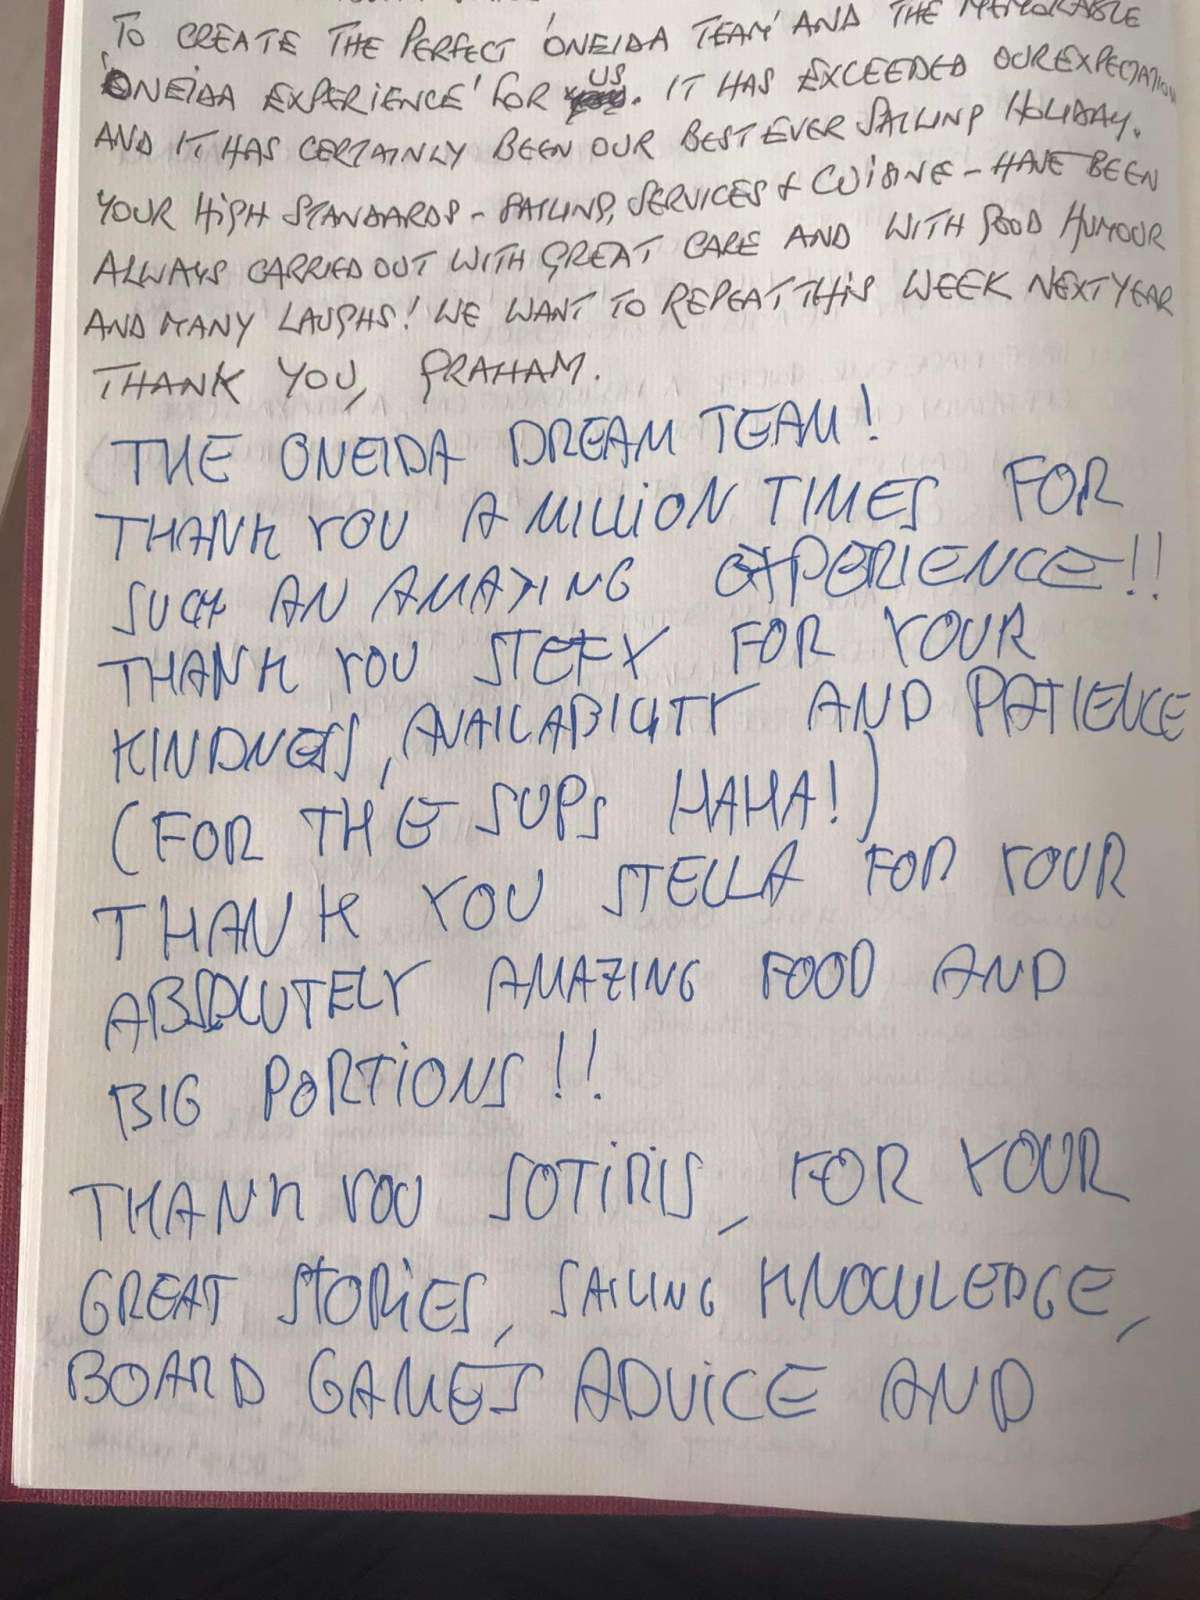 TO CREATE THE PERFECT 'ONEIDA TEAM' AND THE MEMORABLE
'ONEIDA EXPERIENCE' FOR US. IT HAS EXCEEDED OUR EXPECTATION
AND IT HAS CERTAINLY BEEN OUR BEST EVER SAILING HOLIDAY.
YOUR HIGH STANDARDS - SAILING, SERVICES & CUISINE - HAVE BEEN
ALWAYS CARRIED OUT WITH GREAT CARE AND WITH GOOD HUMOUR
AND MANY LAUGHS! WE WANT TO REPEAT THIS WEEK NEXT YEAR
THANK YOU, GRAHAM.
THE ONEIDA DREAM TEAM!
THANK YOU A MILLION TIMES FOR
SUCH AN AMAZING EXPERIENCE!!
THANK YOU STEFY FOR YOUR
KINDNESS, AVAILABILITY AND PATIENCE
(FOR THE SUPS HAHA!)
THANK YOU STELLA FOR YOUR
ABSOLUTELY AMAZING FOOD AND
BIG PORTIONS!!
THANK YOU SOTIRIS, FOR YOUR
GREAT STORIES, SAILING KNOWLEDGE,
BOARD GAMES ADVICE AND